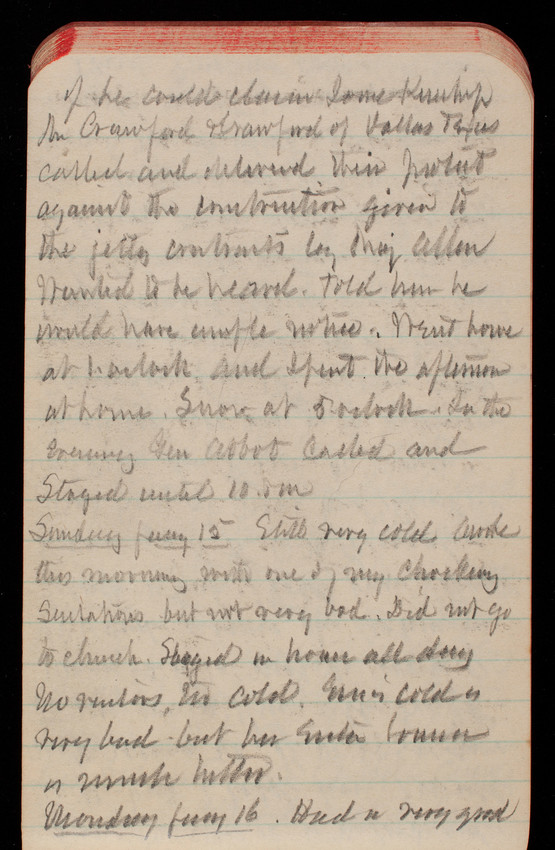 if he could claim some Kinship
Mr Crawford & Crawford of Dallas Texas
called and delivered their protest
against the construction given to
the jetty contracts by Maj Allen
Wanted to be heard. Told him he
would have ample notice. Went home
at 1 oclock and spent the afternoon
at home. Snow at 5 oclock. In the
evening Gen Abbot Called and
Stayed until 10. pm
Sunday Jany 15 Still very cold Awoke
this morning with one of my Choking
Sensations but not very bad. Did not go
to church. Stayed in house all day
No visitors, too cold. cold is
very bad but her
is much better.
Monday Jany 16. Had a very good